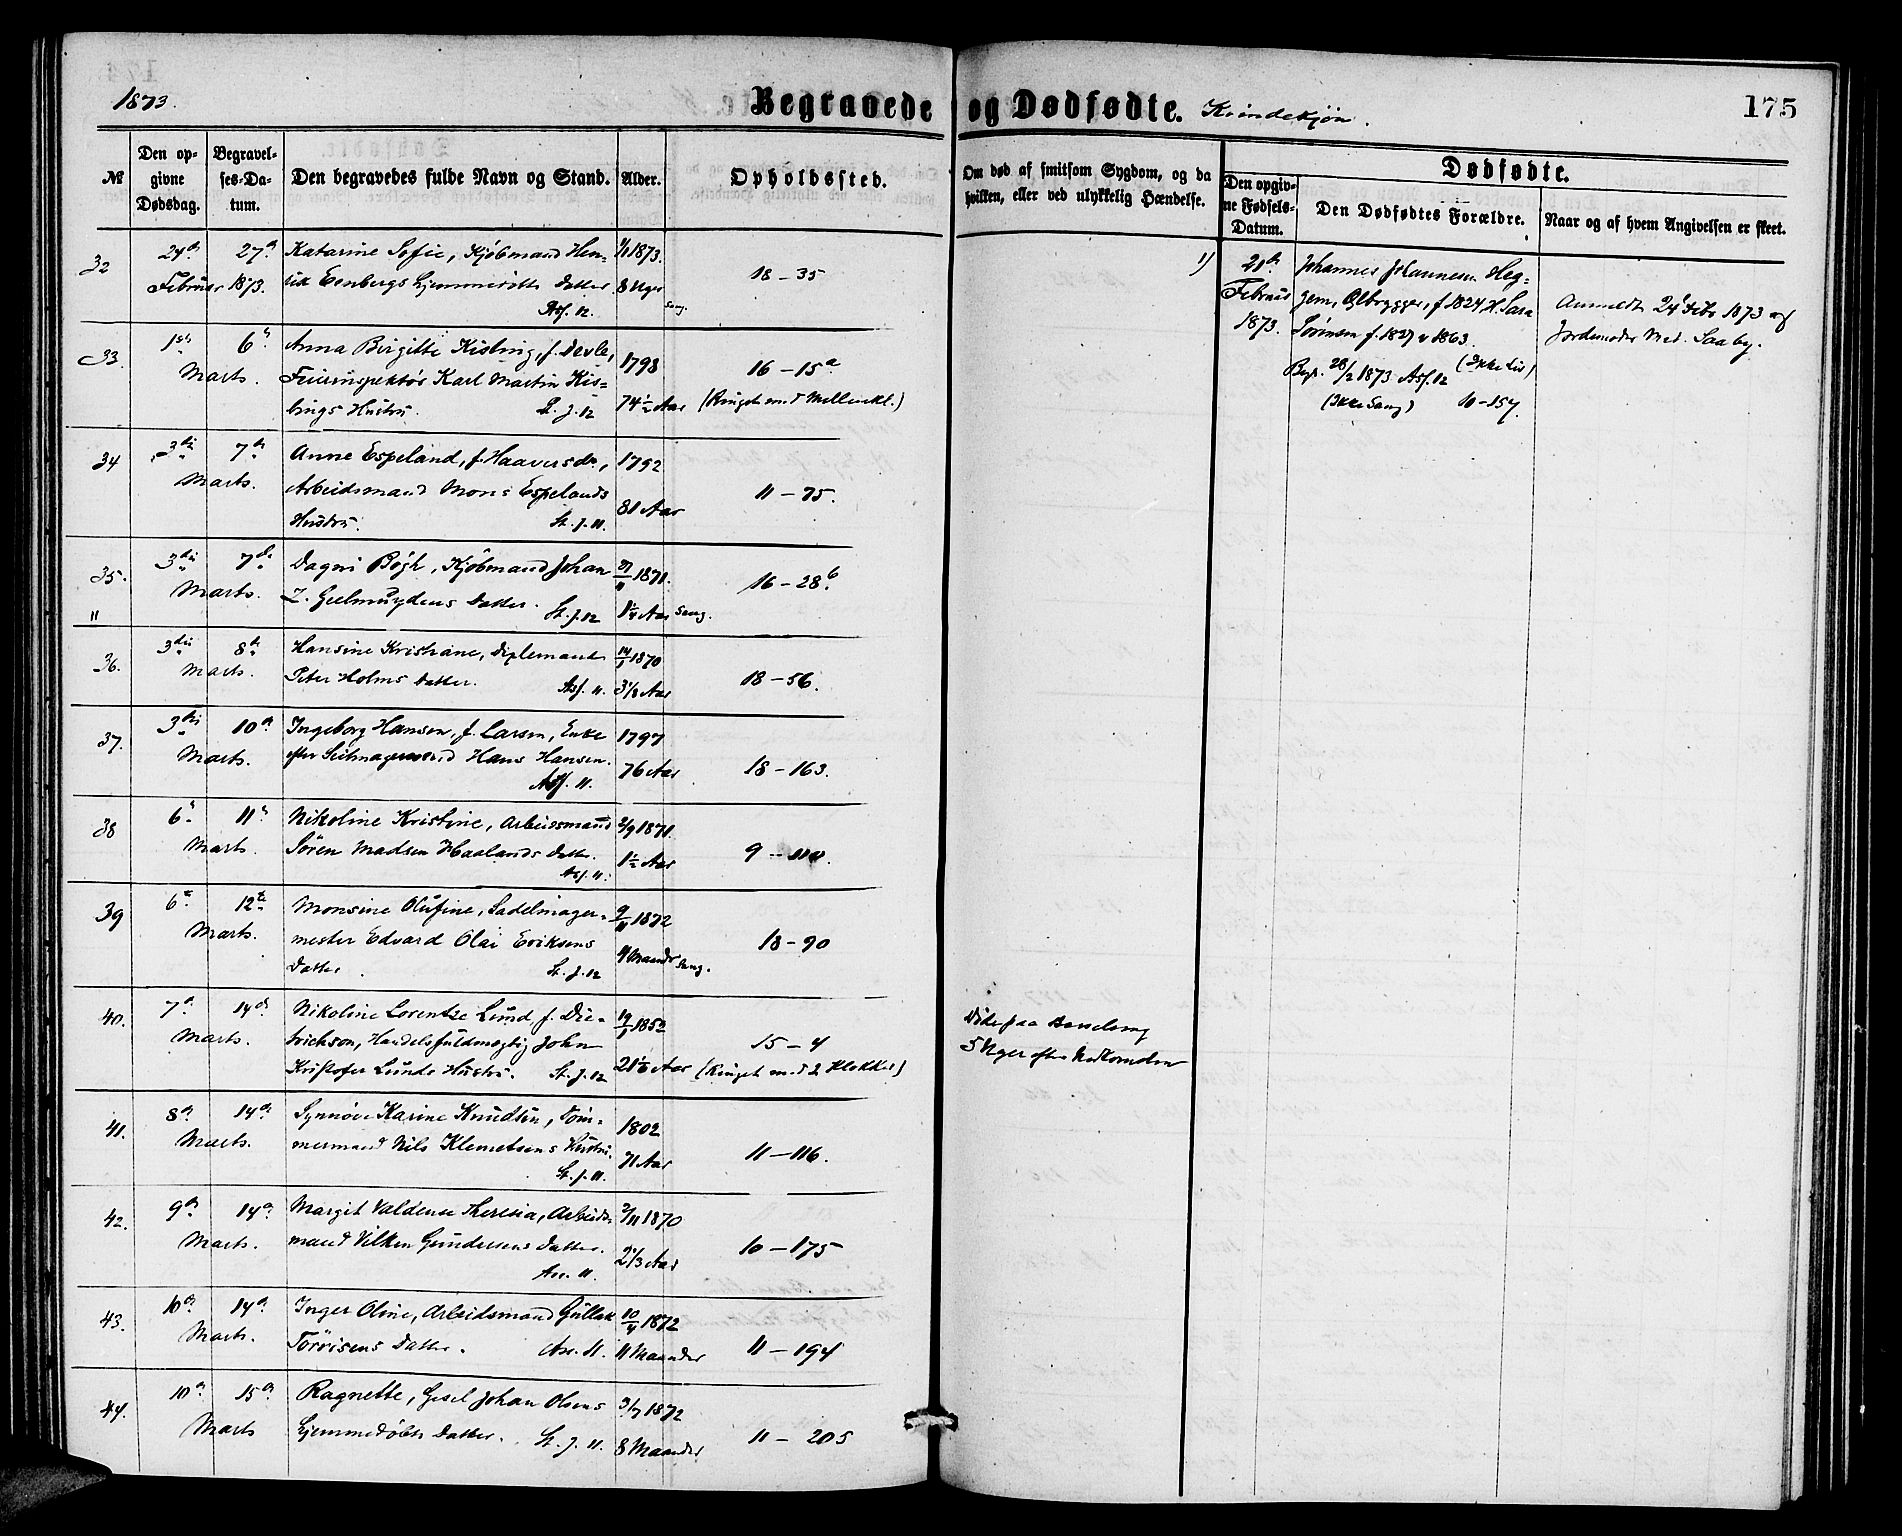 1873.
Begravede og Dødfødte. Kvindekjøn.
175
№
Den opgivne Dødsdag.
Begravelses-Datum.
Den begravedes fulde Navn og Stand.
Alder.
Opholdssted.
Om død af smitsom Sygdom, og da hvilken, eller ved ulykkelig Hændelse.
Dødfødte.
Den opgivne Fødsels-Datum.
Den Dødfødtes Forældre.
Naar og af hvem Angivelsen er skeet.
32 24de 27de Katarine Sofie, Kjøbmand Hen- 1/1 1873.
Februar 1873. rik Hjemmedøbte Datter 8 Uger 18 – 35
Ass. 12. Sang.
33. 1ste 6te Anna Birgitte Kisbing, f. Devle, 1798 16 – 15a
Marts. Karl Martin Kis-
bings Hustru. St. J. 12 74½ Aar (Ringet med Mellemkl.)
34 3die 7de Anne Espeland, f. Haaversdr., 1792
Marts. Arbeidsmand Mons Espelands 11 – 75.
Hustru. St. J. 11. 81 Aar
35. 3die 7de Dagni Bøgh, Kjøbmand Johan 1871. 16 – 28b
Marts. Z. Geelmuydens Datter. St. J. 12 1¼ Aar Sang.
"
36. 3die 8de Hansine Kristiane, Diplemant 14/1 1870
Marts. Peter Holms Datter. Ass. 11. 3 1/8 Aar 18 – 56.
37. 3die 10de Ingeborg Hansen, f. Larsen, Enke 1797
Marts. efter Seilmagersvend Hans Hansen. 76 Aar 18 – 163.
Ass. 11.
38 6te 11te Nikoline Kristine, Arbeidsmand 2/9 1871.
Marts. Søren Madsen Haalands Datter. 1½ Aar 9 –
Ass. 11.
39 6te 12te Monsine Olufine, Sadelmager- 9/11 1872
Marts. mester Edvard Olai Eriksens 18 – 90
Datter. St. J. 12 4 Maander Sang.
40. 7de 14de Nikoline Lorentze Lund, f. Die- 19/1 1852
Marts. trichson, Handelsfuldmægtig John 15 – 4
Kristofer Lunds Hustru. St. J. 12 (Ringet med 2 Klokker)
Døde paa Barselseng
5 Uger efter Nedkomsten
41. 8de 14de Synnøve Karine Knudsen, Tøm- 1802
Marts. mermand Nils Klemetsens Hustru. 71 Aar 11 – 116.
St. J. 11.
42. 9de 14de Margit Valdene Theresia, Arbeids- 2/11 1870
Marts. mand Vilken Gundersens Datter. 2 1/3 Aar 10 – 175
Ass. 11.
43. 10de 14de Inger Oline, Arbeidsmand Gullak 10/4 1872
Marts. Torrisens Datter. Ass. 11. 11 Maander 11 – 194
44. 10de 15de Ragnette, Gesel Johan Olsens 3/7 1872
Marts Hjemmedøbte Datter. St. J. 11. 8 Maander 11 – 205
1) 21de Johannes Johannesen Heg-
Februar gem, Ølbrygger, f. 1824 H. Sara
1873. Sørensen f. 1827 v 1863.
Begr. 28/2 1873 Ass. 12 (Ikke Liv)
(Ikke Sang) 10 – 157.
Anmeldt 24de Febr 1873 af
Jordemoder Mad. Saaby.